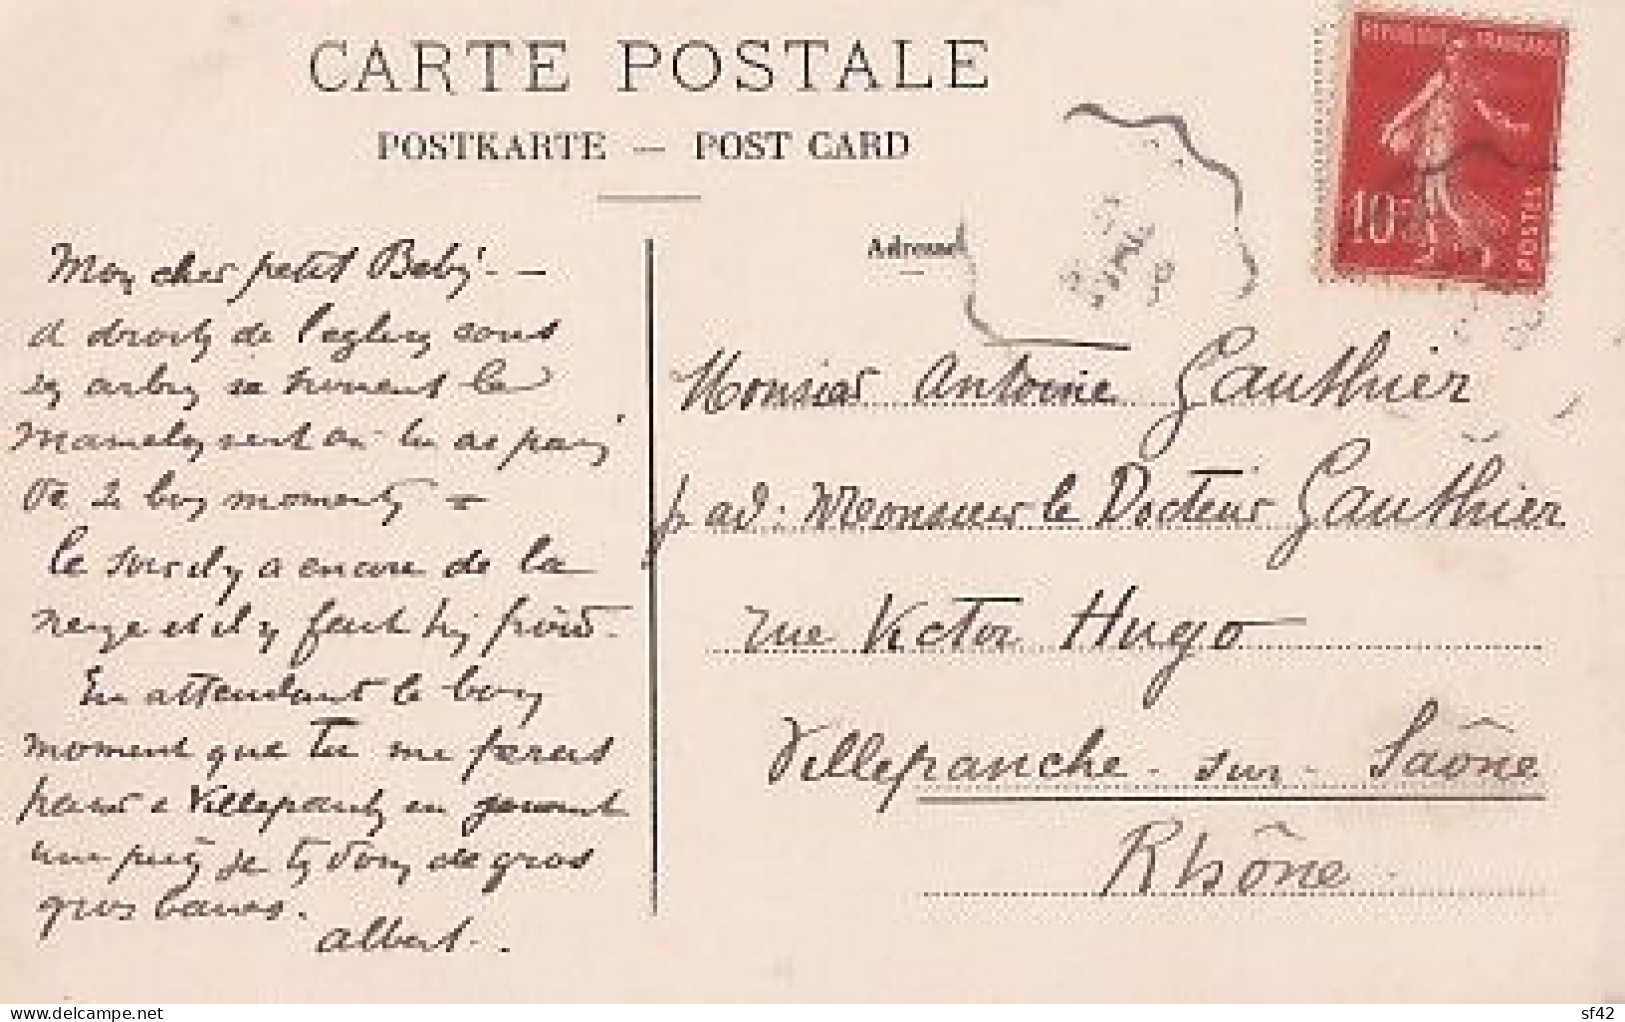 CARTE POSTALE
POSTKARTE — POST CARD
Adresse
REPUBLIQUE FRANCAISE
10c
POSTES
Mon cher petit Bebé. —
A droite de l'eglise sous
les arbres se trouvent les
où tu as passé
de 2 bons moments —
le soir il y a encore de la
neige et il y fait très froid.
En attendant le bon
moment que tu me feras
passer a Villefranche en jouant
je t'envoie de gros
gros baisers.
Albert.
Monsieur Antoine Gauthier
p. ad: Monsieur le Docteur Gauthier
rue Victor Hugo
Villefranche - sur - Saône
Rhône.
sf42
www.delcampe.net